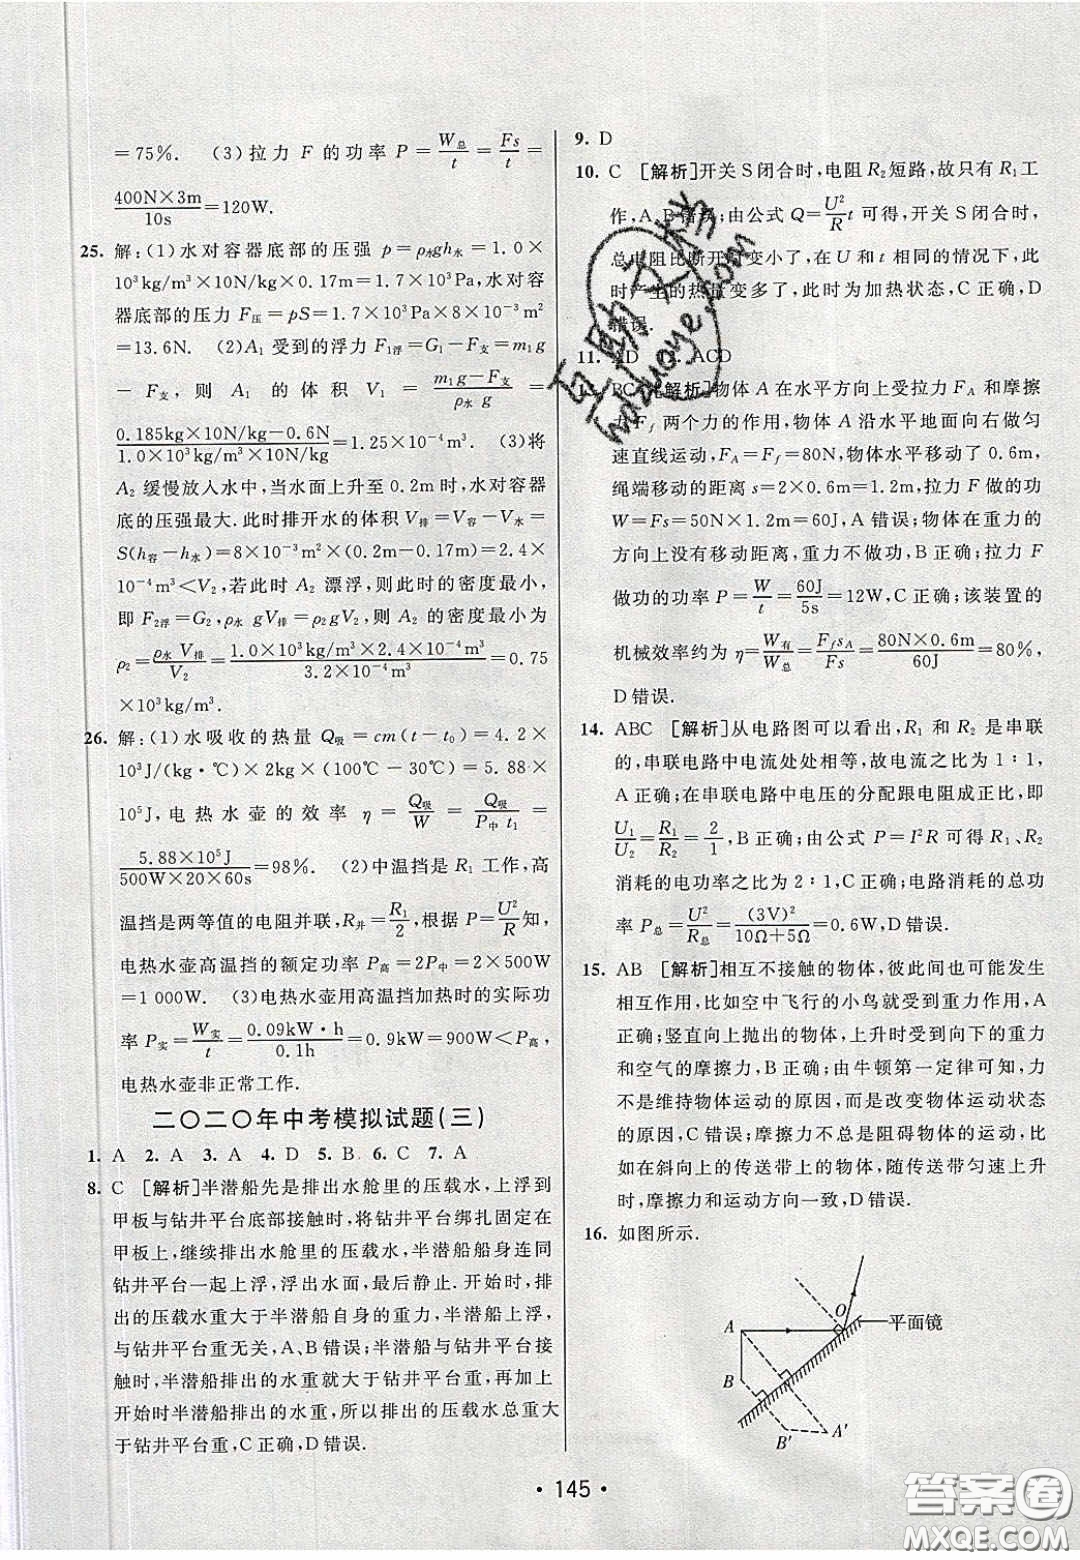 =75%. (3)拉力 F 的功率 P=W总/t=Fs/t=
400N×3m/10s=120W.
25. 解:(1)水对容器底部的压强 p=ρ水gh水=1.0×
10³kg/m³×10N/kg×0.17m=1.7×10³Pa,水对容
器底部的压力 F压=pS=1.7×10³Pa×8×10⁻³m²
=13.6N. (2)A₁ 受到的浮力 F₁浮=G₁-F支=m₁g
-F支,则 A₁ 的体积 V₁=(m₁g-F支)/(ρ水 g)=
(0.185kg×10N/kg-0.6N)/(1.0×10³kg/m³×10N/kg)=1.25×10⁻⁴m³. (3)将
A₂ 缓慢放入水中,当水面上升至0.2m时,水对容器
底的压强最大.此时排开水的体积 V排=V容-V水=
S(h容-h水)=8×10⁻³m²×(0.2m-0.17m)=2.4×
10⁻⁴m³<V₂,若此时 A₂ 漂浮,则此时的密度最小,
即 F₂浮=G₂,ρ水 gV排=ρ₂gV₂,则 A₂ 的密度最小为
ρ₂=ρ水 V排/V₂=(1.0×10³kg/m³×2.4×10⁻⁴m³)/(3.2×10⁻⁴m³)=0.75
×10³kg/m³.
26. 解:(1)水吸收的热量 Q吸=cm(t-t₀)=4.2×
10³J/(kg·℃)×2kg×(100℃-30℃)=5.88×
10⁵J,电热水壶的效率 η=Q吸/W=Q吸/(P中 t₁)=
5.88×10⁵J/(500W×20×60s)=98%. (2)中温挡是 R₁ 工作,高
温挡是两等值的电阻并联,R并=R₁/2,根据 P=U²/R知,
电热水壶高温挡的额定功率 P高=2P中=2×500W
=1 000W. (3)电热水壶用高温挡加热时的实际功
率 P实=W实/t=0.09kW·h/0.1h=0.9kW=900W<P高,
电热水壶非正常工作.
二〇二〇年中考模拟试题(三)
1. A 2. A 3. A 4. D 5. B 6. C 7. A
8. C [解析]半潜船先是排出水舱里的压载水,上浮到
甲板与钻井平台底部接触时,将钻井平台绑扎固定在
甲板上,继续排出水舱里的压载水,半潜船船身连同
钻井平台一起上浮,浮出水面,最后静止.开始时,排
出的压载水重大于半潜船自身的重力,半潜船上浮,
与钻井平台重无关,A、B错误;半潜船与钻井平台接
触时,半潜船排出的水重就大于钻井平台重,再加上
开始时半潜船排出的水重,所以排出的压载水总重大
于钻井平台重,C正确,D错误.
9. D
10. C [解析]开关S闭合时,电阻 R₂ 短路,故只有 R₁ 工
作,A、B错误;由公式 Q=U²/R t 可得,开关S闭合时,
总电阻比断开时变小了,在 U 和 t 相同的情况下,此
时产生的热量变多了,此时为加热状态,C正确,D
错误.
11. AD 12. ACD
BC [解析]物体 A 在水平方向上受拉力 F_A 和摩擦
力 F_f 两个力的作用,物体 A 沿水平地面向右做匀
速直线运动,F_A=F_f=80N,物体水平移动了0.6m,
绳端移动的距离 s=2×0.6m=1.2m,拉力 F 做的功
W=Fs=50N×1.2m=60J,A错误;物体在重力的
方向上没有移动距离,重力不做功,B正确;拉力 F
做功的功率 P=W/t=60J/5s=12W,C正确;该装置的
机械效率约为 η=W有/W总=F_f s_A/Fs=80N×0.6m/60J=80%,
D错误.
14. ABC [解析]从电路图可以看出,R₁ 和 R₂ 是串联
的,串联电路中电流处处相等,故电流之比为1∶1,
A正确;在串联电路中电压的分配跟电阻成正比,即
U₁/U₂=R₁/R₂=2/1,B正确;由公式 P=I²R 可得 R₁、R₂
消耗的电功率之比为2∶1,C正确;电路消耗的总功
率 P总=U²/R总=(3V)²/(10Ω+5Ω)=0.6W,D错误.
15. AB [解析]相互不接触的物体,彼此间也可能发生
相互作用,比如空中飞行的小鸟就受到重力作用,A
正确;竖直向上抛出的物体,上升时受到向下的重力
和空气的摩擦力,B正确;由牛顿第一定律可知,力
不是维持物体运动的原因,是改变物体运动状态的
原因,C错误;摩擦力不总是阻碍物体的运动,比
如在斜向上的传送带上的物体,随传送带匀速上升
时,摩擦力和运动方向一致,D错误.
16. 如图所示.
O
A
平面镜
B
B′
A′
·145·
互助文档
hdzuoye.com
答案圈
MXQE.COM